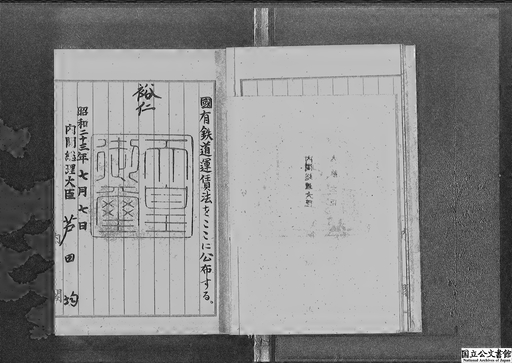 國有鉄道運賃法をここに公布する。
裕仁
天皇御璽
昭和二十三年七月七日
内閣総理大臣 芦田均
内閣総理大臣
国立公文書館
National Archives of Japan